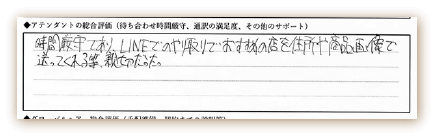 ◆アテンドの総合評価（待ち合わせ時間厳守、通訳の満足度、その他のサポート）
時間厳守であり、LINEでのやり取りでおすすめの店を住所や商品画像で
送ってくれる等、親切だった。